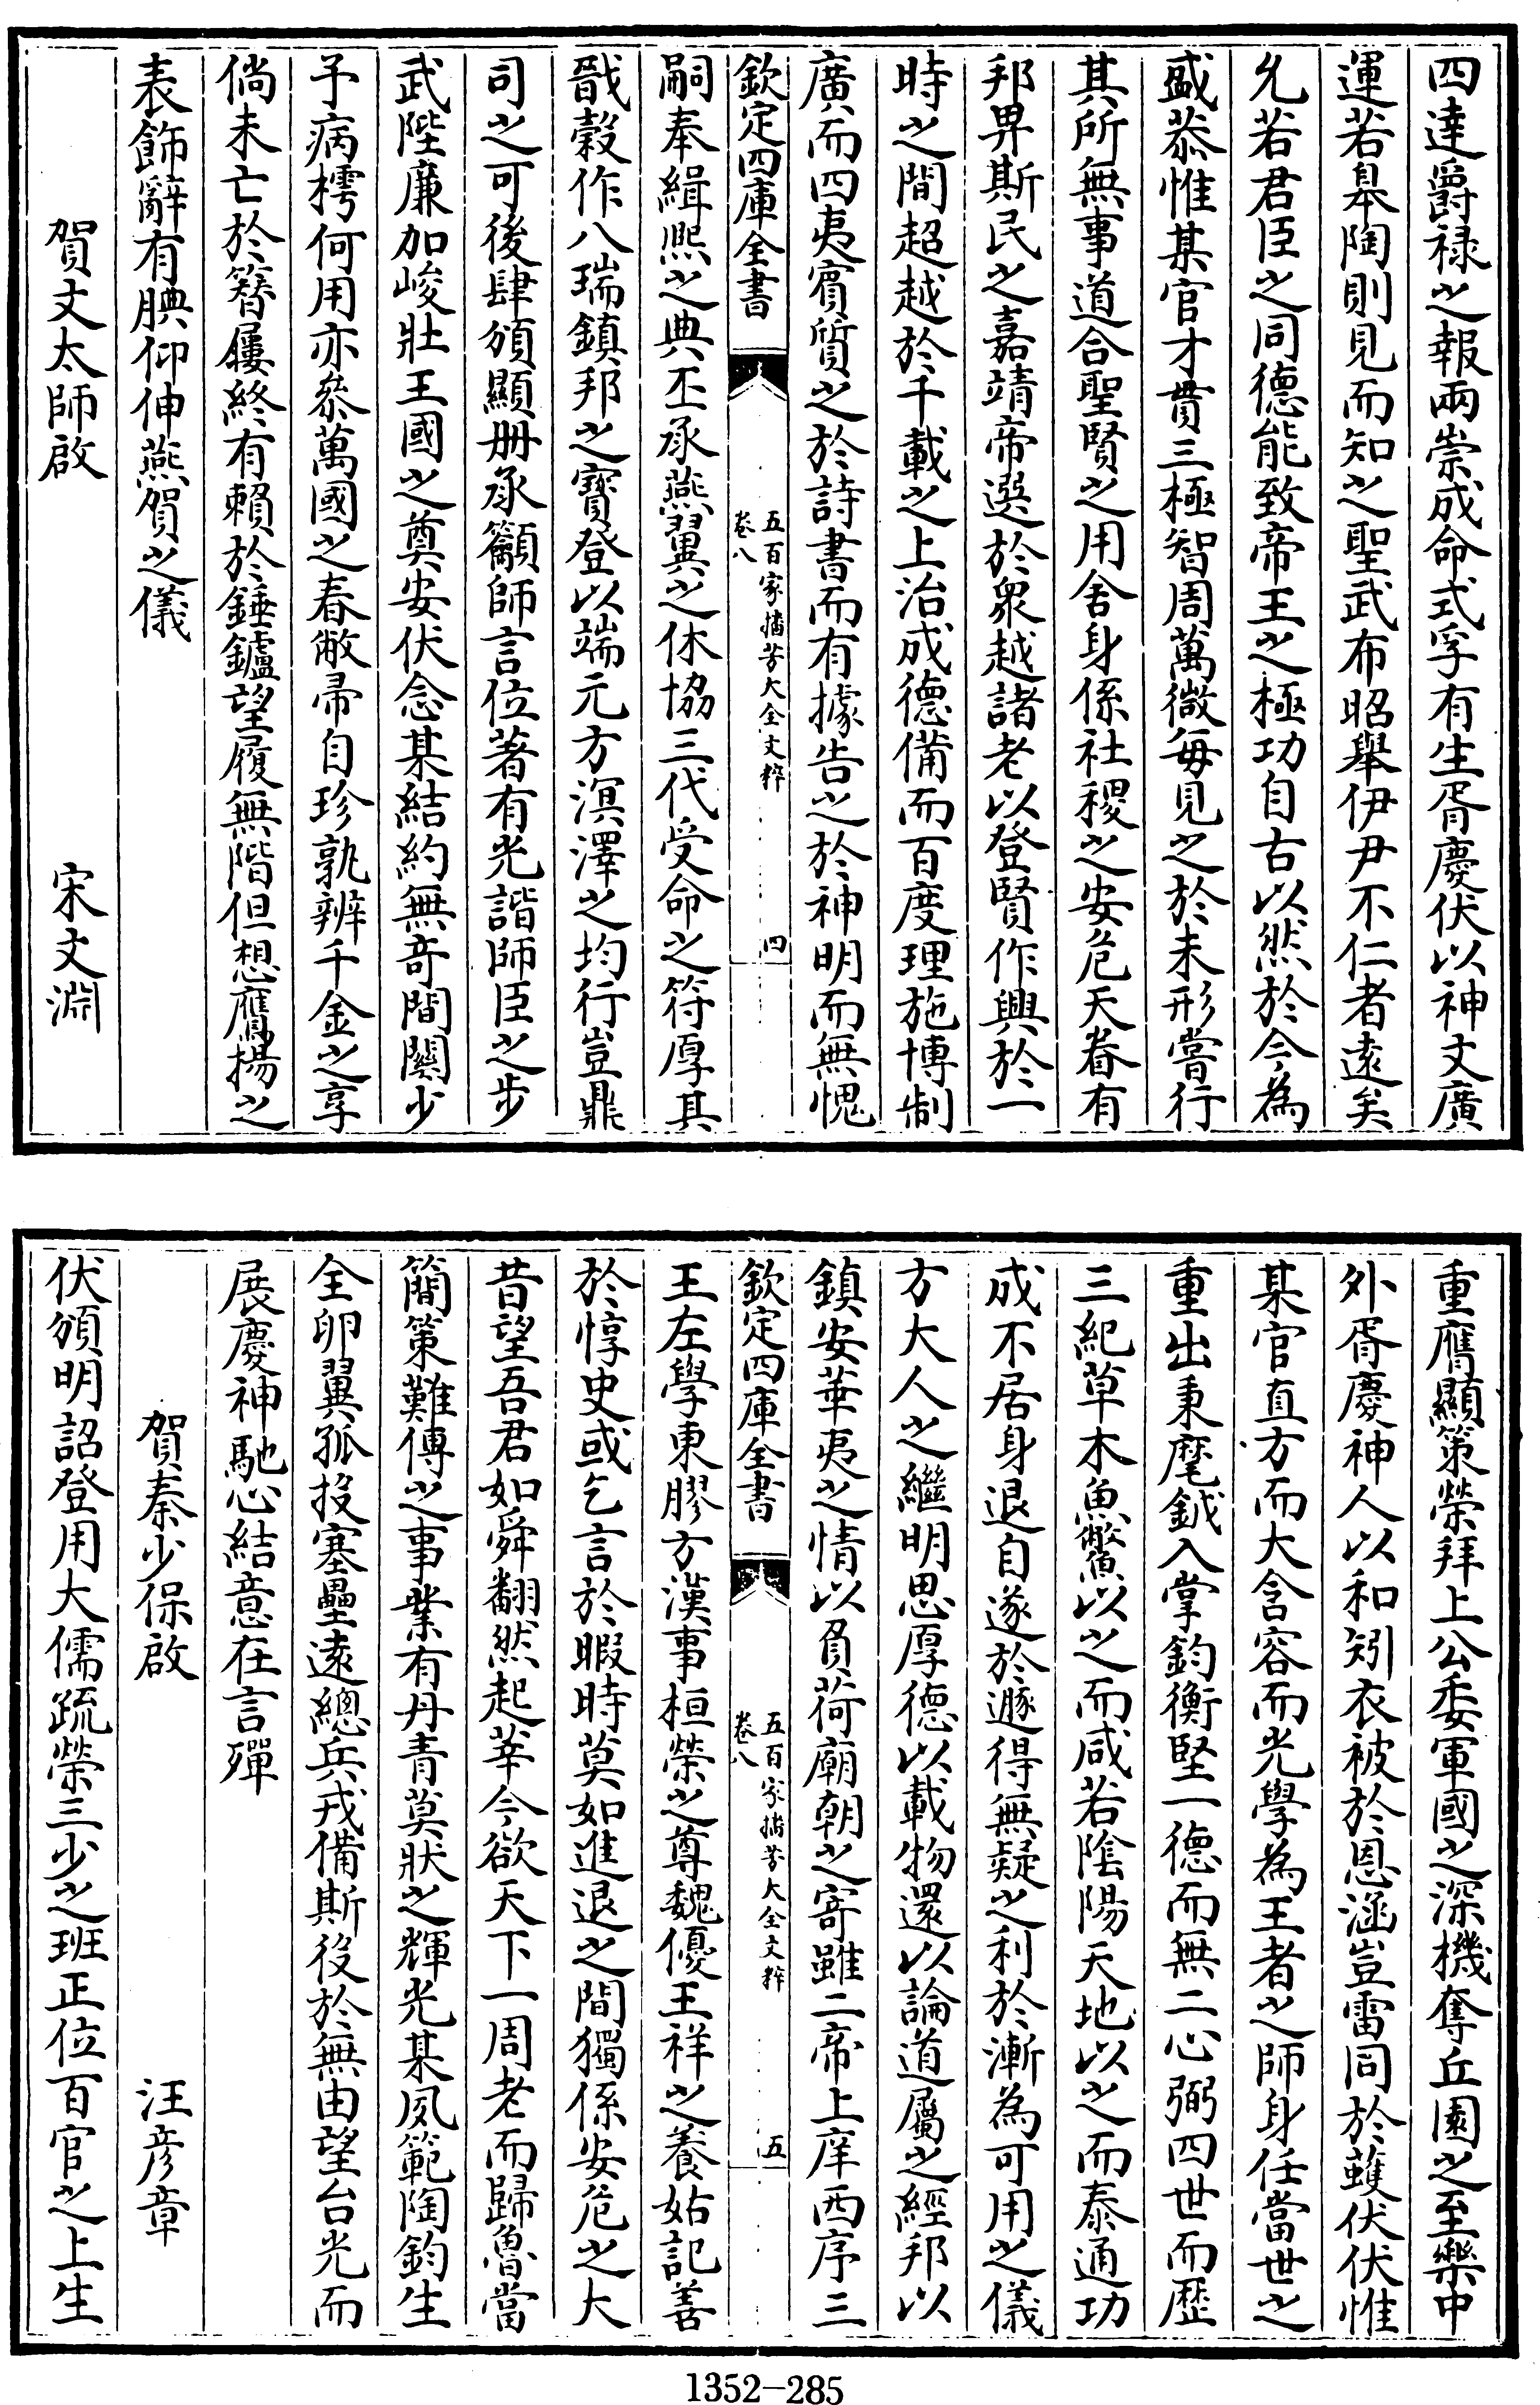 四達爵祿之報兩崇成命式孚有生胥慶伏以神文廣
運若臯陶則見而知之聖武布昭舉伊尹不仁者遠矣
允若君臣之同德能致帝王之極功自古以然於今為
盛恭惟某官才貫三極智周萬微每見之於未形嘗行
其所無事道合聖賢之用舍身係社稷之安危天眷有
邦畀斯民之嘉靖帝選於衆越諸老以登賢作興於一
時之間超越於千載之上治成德備而百度理施博制
廣而四夷賓質之於詩書而有據告之於神明而無愧
欽定四庫全書
五百家播芳大全文粹
卷八
四
嗣奉緝熙之典丕承燕翼之休協三代受命之符厚其
戩榖作八瑞鎮邦之寶登以端元方渙澤之均行豈鼎
司之可後肆頒顯册承籲師言位著有光諧師臣之步
武陛廉加峻壯王國之奠安伏念某結約無奇間關少
予病樗何用亦叅萬國之春敝帚自珍孰辨千金之享
倘未亡於簪屨終有賴於錘鑪望履無階但想鷹揚之
表飾辭有腆仰伸燕賀之儀
賀文太師啟
宋文淵
重膺顯策榮拜上公委軍國之深機奪丘園之至樂中
外胥慶神人以和矧衣被於恩涵豈雷同於蓶伏伏惟
某官直方而大含容而光學為王者之師身任當世之
重出秉麾鉞入掌鈞衡堅一德而無二心弼四世而歷
三紀草木魚鱉以之而咸若陰陽天地以之而泰通功
成不居身退自遂於遯得無疑之利於漸為可用之儀
方大人之繼明思厚德以載物還以論道屬之經邦以
鎮安華夷之情以負荷廟朝之寄雖二帝上庠西序三
欽定四庫全書
五百家播芳大全文粹
卷八
五
王左學東膠方漢事桓榮之尊魏優王祥之養姑記善
於惇史或乞言於暇時莫如進退之間獨係安危之大
昔望吾君如舜翻然起莘今欲天下一周老而歸魯當
簡策難傳之事業有丹青莫狀之輝光某夙範陶鈞生
全卵翼孤投塞壘遠總兵戎備斯役於無由望台光而
展慶神馳心結意在言殫
賀秦少保啟
汪彦章
伏頒明詔登用大儒疏榮三少之班正位百官之上生
1352-285